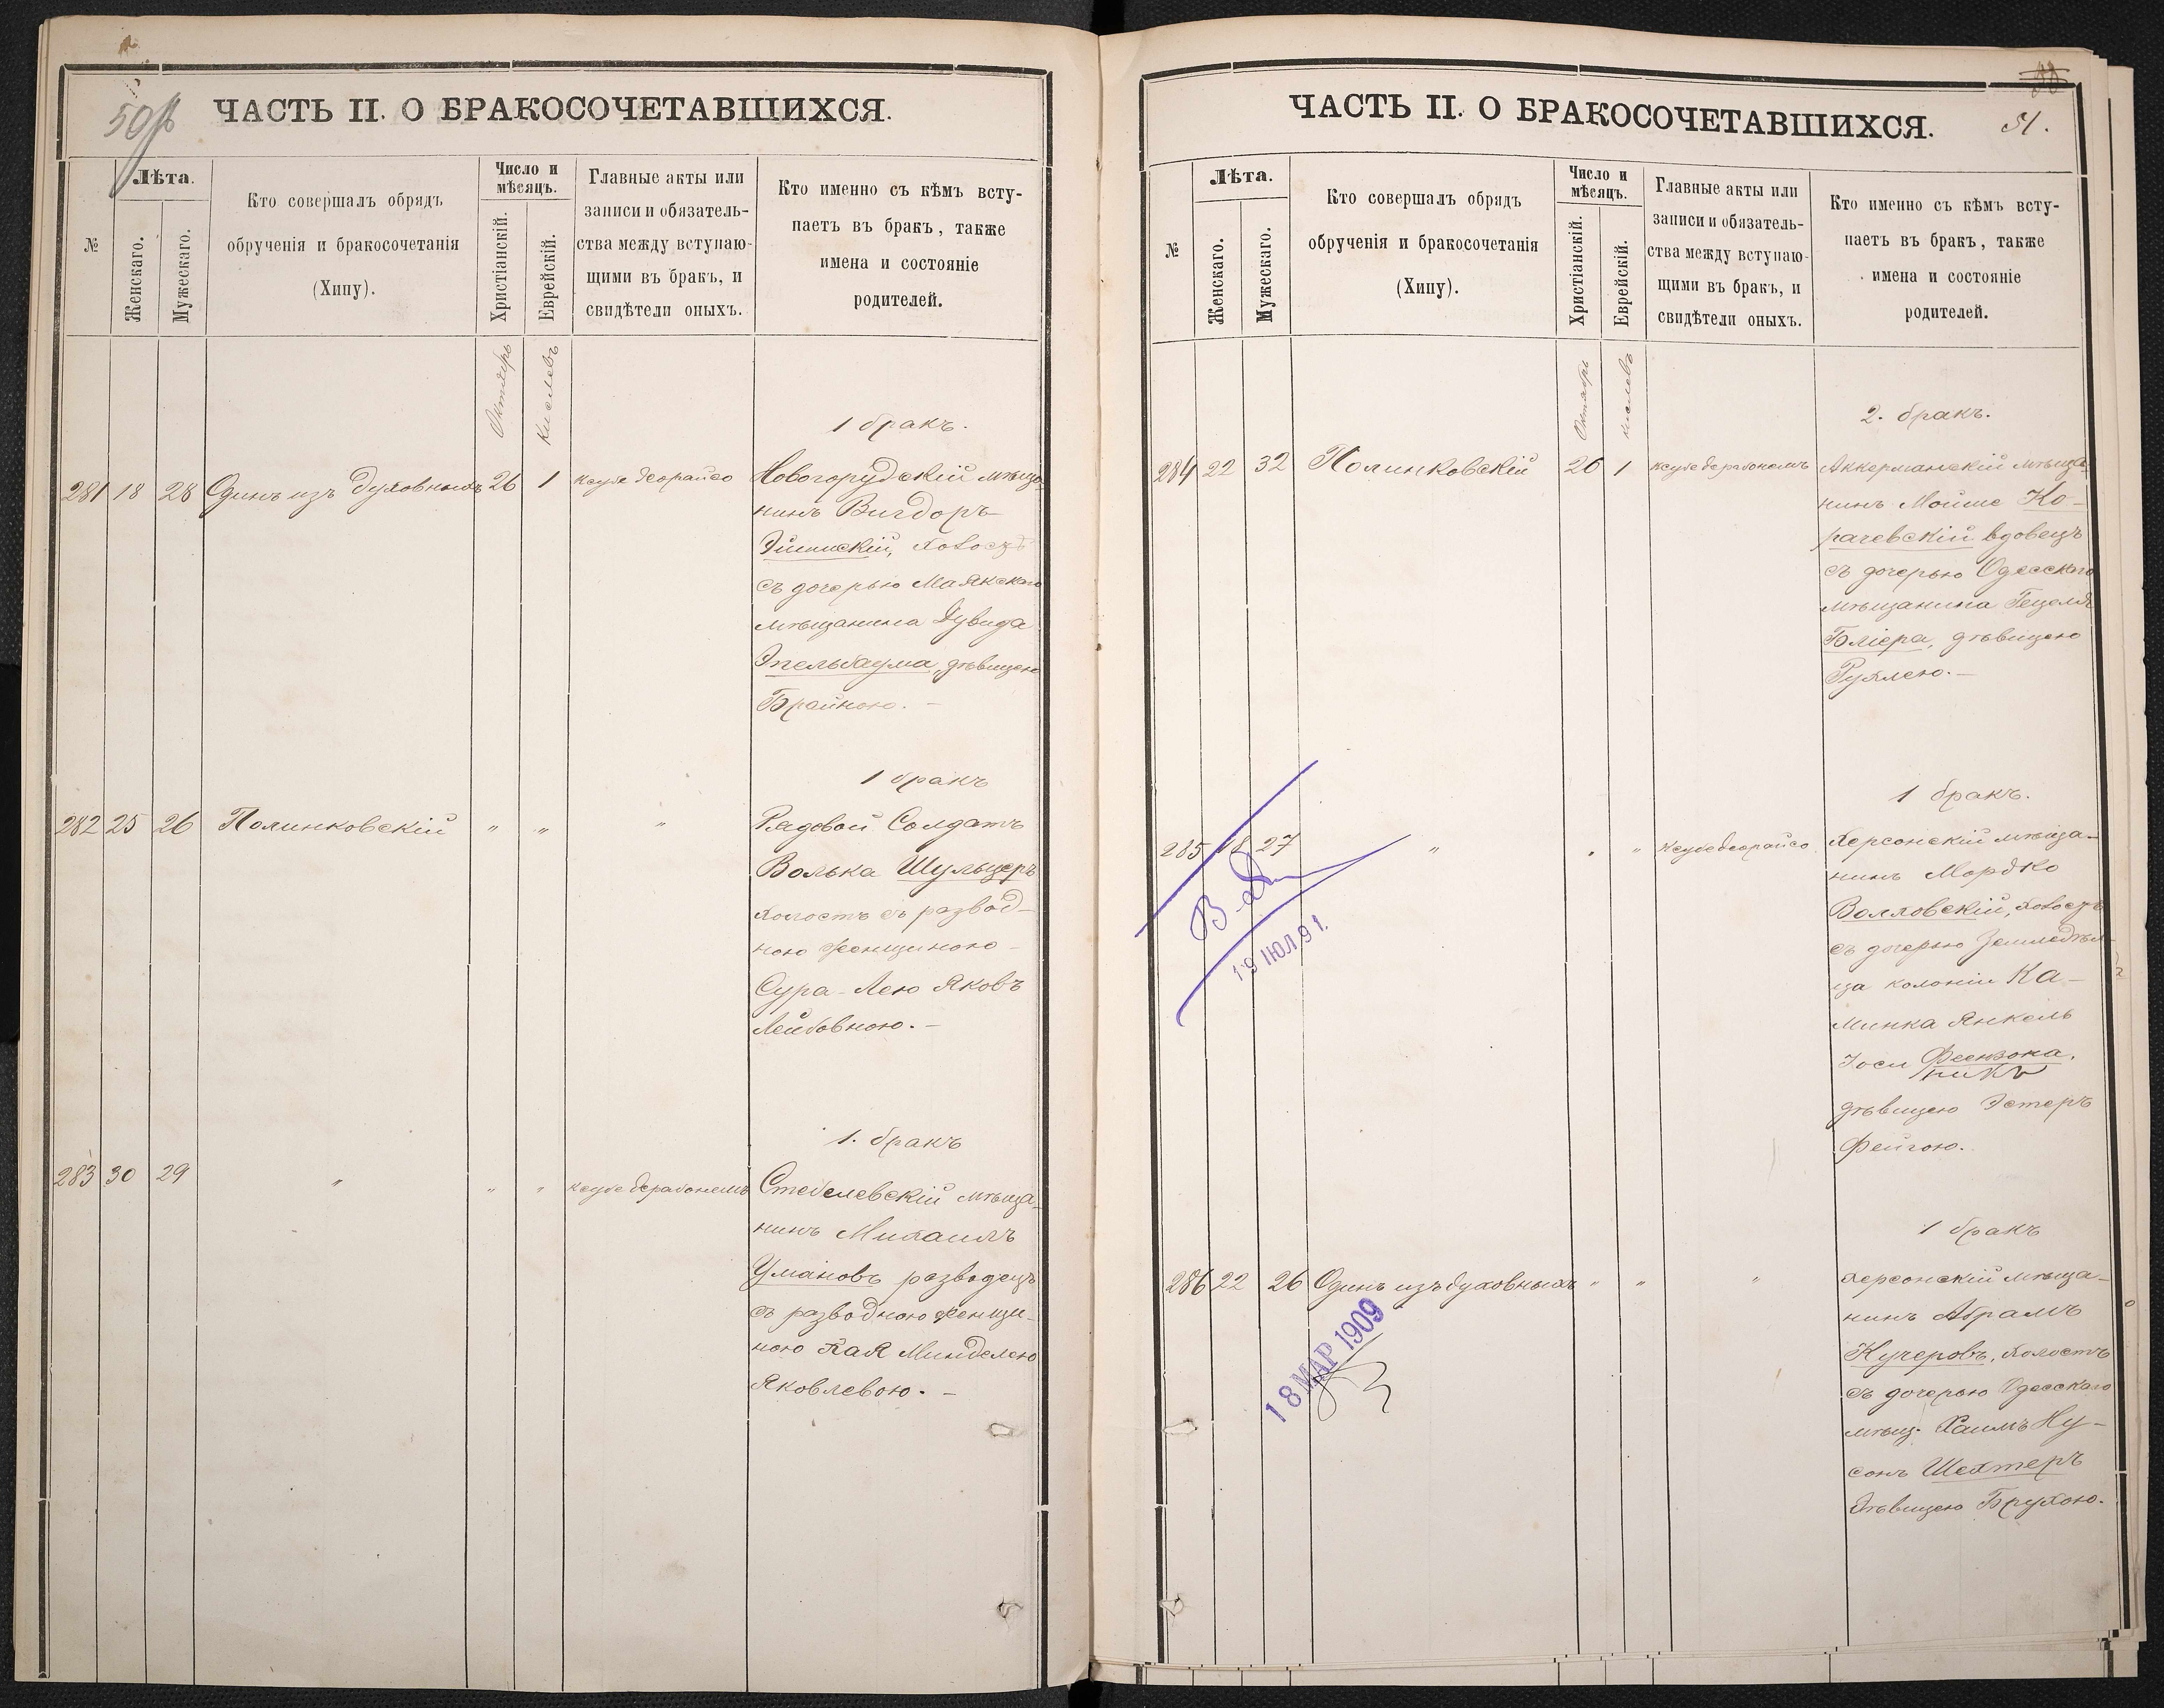 50
ЧАСТЬ II. О БРАКОСОЧЕТАВШИХСЯ.
№
Лѣта.
Женскаго.
Мужескаго.
Кто совершалъ обрядъ
обрученія и бракосочетанія
(Хипу).
Число и
мѣсяцъ.
Христіанскій.
Еврейскій.
Главные акты или
записи и обязатель-
ства между вступаю-
щими въ бракъ, и
свидѣтели оныхъ.
Кто именно съ кѣмъ всту-
паетъ въ бракъ, также
имена и состояніе
родителей.
Октябрь
Кислевъ
1 бракъ.
281 18 28 Одинъ изъ духовныхъ 26 1 ксубе деорайсо Новогорудскій мѣща-
нинъ Вигдоръ
холостъ
съ дочерью Маякскаго
мѣщанина Дувида
Эпельбаума, дѣвицею
Брайною. –
1 бракъ
282 25 26 Полинковскій „ „ „ Рядовой Солдатъ
Волька Шульцеръ
холостъ съ развод-
ною женщиною
Сура-Лею Яковъ
Лейбовною. –
1. бракъ
283 30 29 „ „ „ ксубе дерабонемъ Стебелевскій мѣща-
нинъ Михаилъ
Умановъ разводецъ
съ разводною женщи-
ною Хая Минделею
Яковлевою. –
ЧАСТЬ II. О БРАКОСОЧЕТАВШИХСЯ.
51.
№
Лѣта.
Женскаго.
Мужескаго.
Кто совершалъ обрядъ
обрученія и бракосочетанія
(Хипу).
Число и
мѣсяцъ.
Христіанскій.
Еврейскій.
Главные акты или
записи и обязатель-
ства между вступаю-
щими въ бракъ, и
свидѣтели оныхъ.
Кто именно съ кѣмъ всту-
паетъ въ бракъ, также
имена и состояніе
родителей.
Октябрь
кислевъ
2. бракъ.
284 22 32 Полинковскій 26 1 ксубе дерабонемъ Аккерманскій мѣща-
нинъ Мойше Ко-
рачевскій вдовецъ
съ дочерью Одесскаго
мѣщанина Гецеля
дѣвицею
Рухлею. –
1 бракъ.
285 18 27 „ „ „ ксубе деорайсо Херсонскій мѣща-
нинъ Мордко
Волловскій, холостъ
съ дочерью Земледѣль-
ца колоніи Ка-
минка Янкель
Іоси
дѣвицею Эстеръ
Фейгою.
19 ІЮЛ 91.
1 бракъ
286 22 26 Одинъ изъ духовныхъ „ „ „ Херсонскій мѣща-
нинъ Абрамъ
Кучеровъ, холостъ
съ дочерью Одесскаго
мѣщ. Хаимъ Ну-
сонъ Шехтеръ
дѣвицею Брухою.
18 МАР 1909